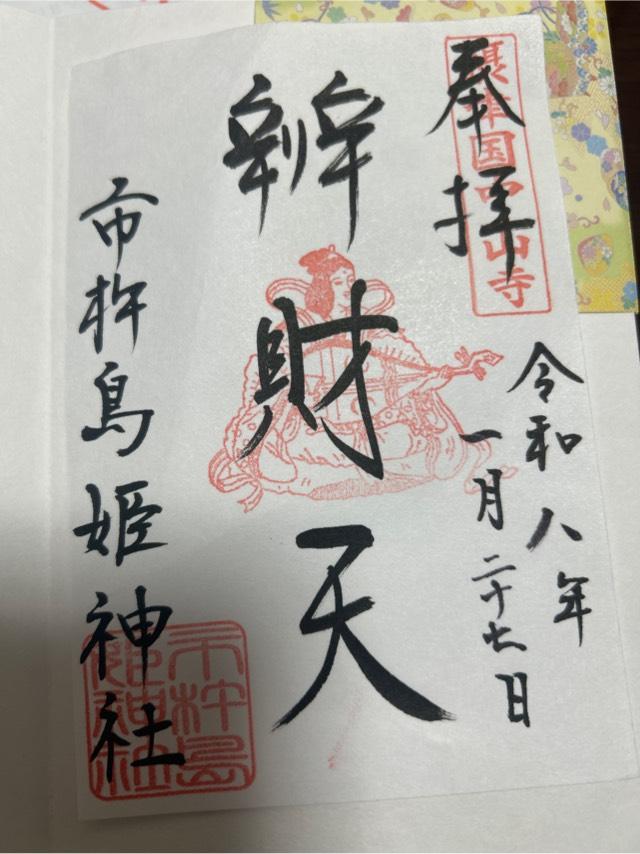 奉拝
摂津国中山寺
令和八年
一月二十七日
辨財天
市杵島姫神社
市杵島
姫神社